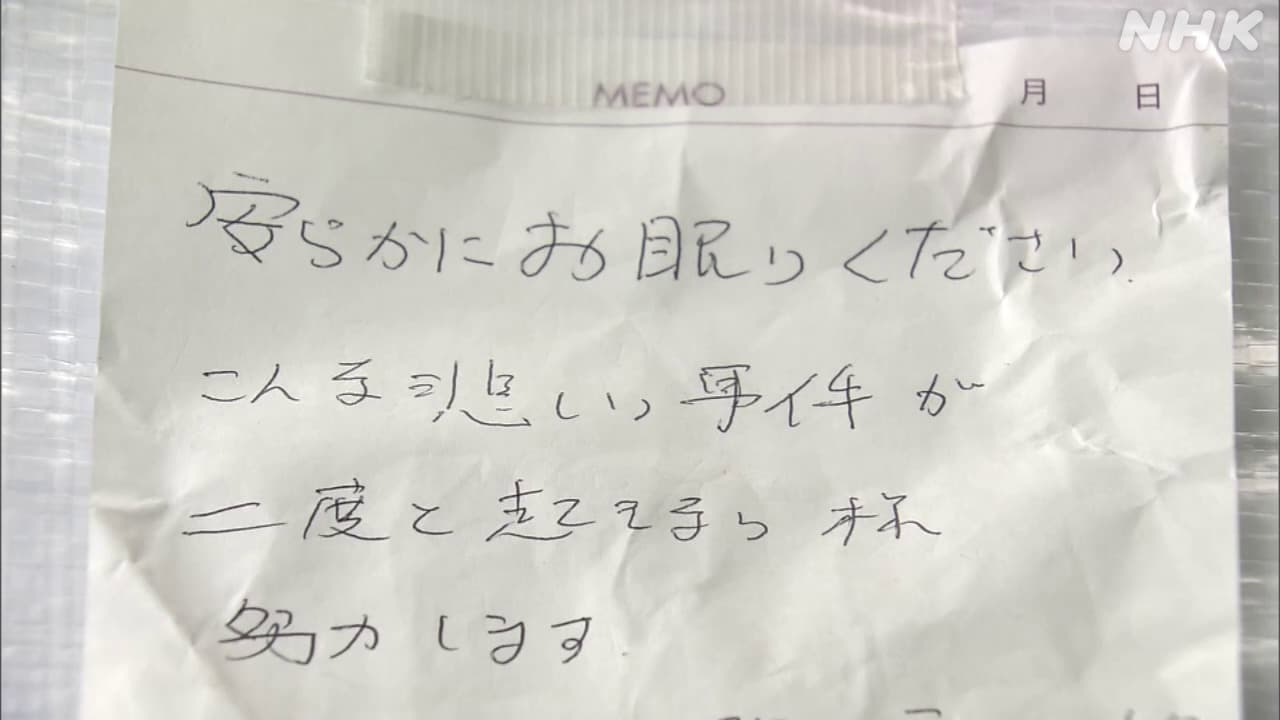 NHK
MEMO 月 日
安らかにお眠りください
こんな悲しい事件が
二度と起こらない様
努力します